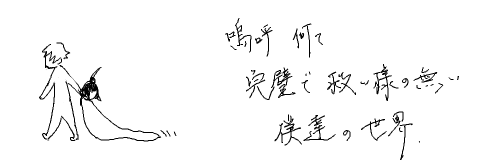 嗚呼 何て
完璧で 救い様の無い
僕達の世界.